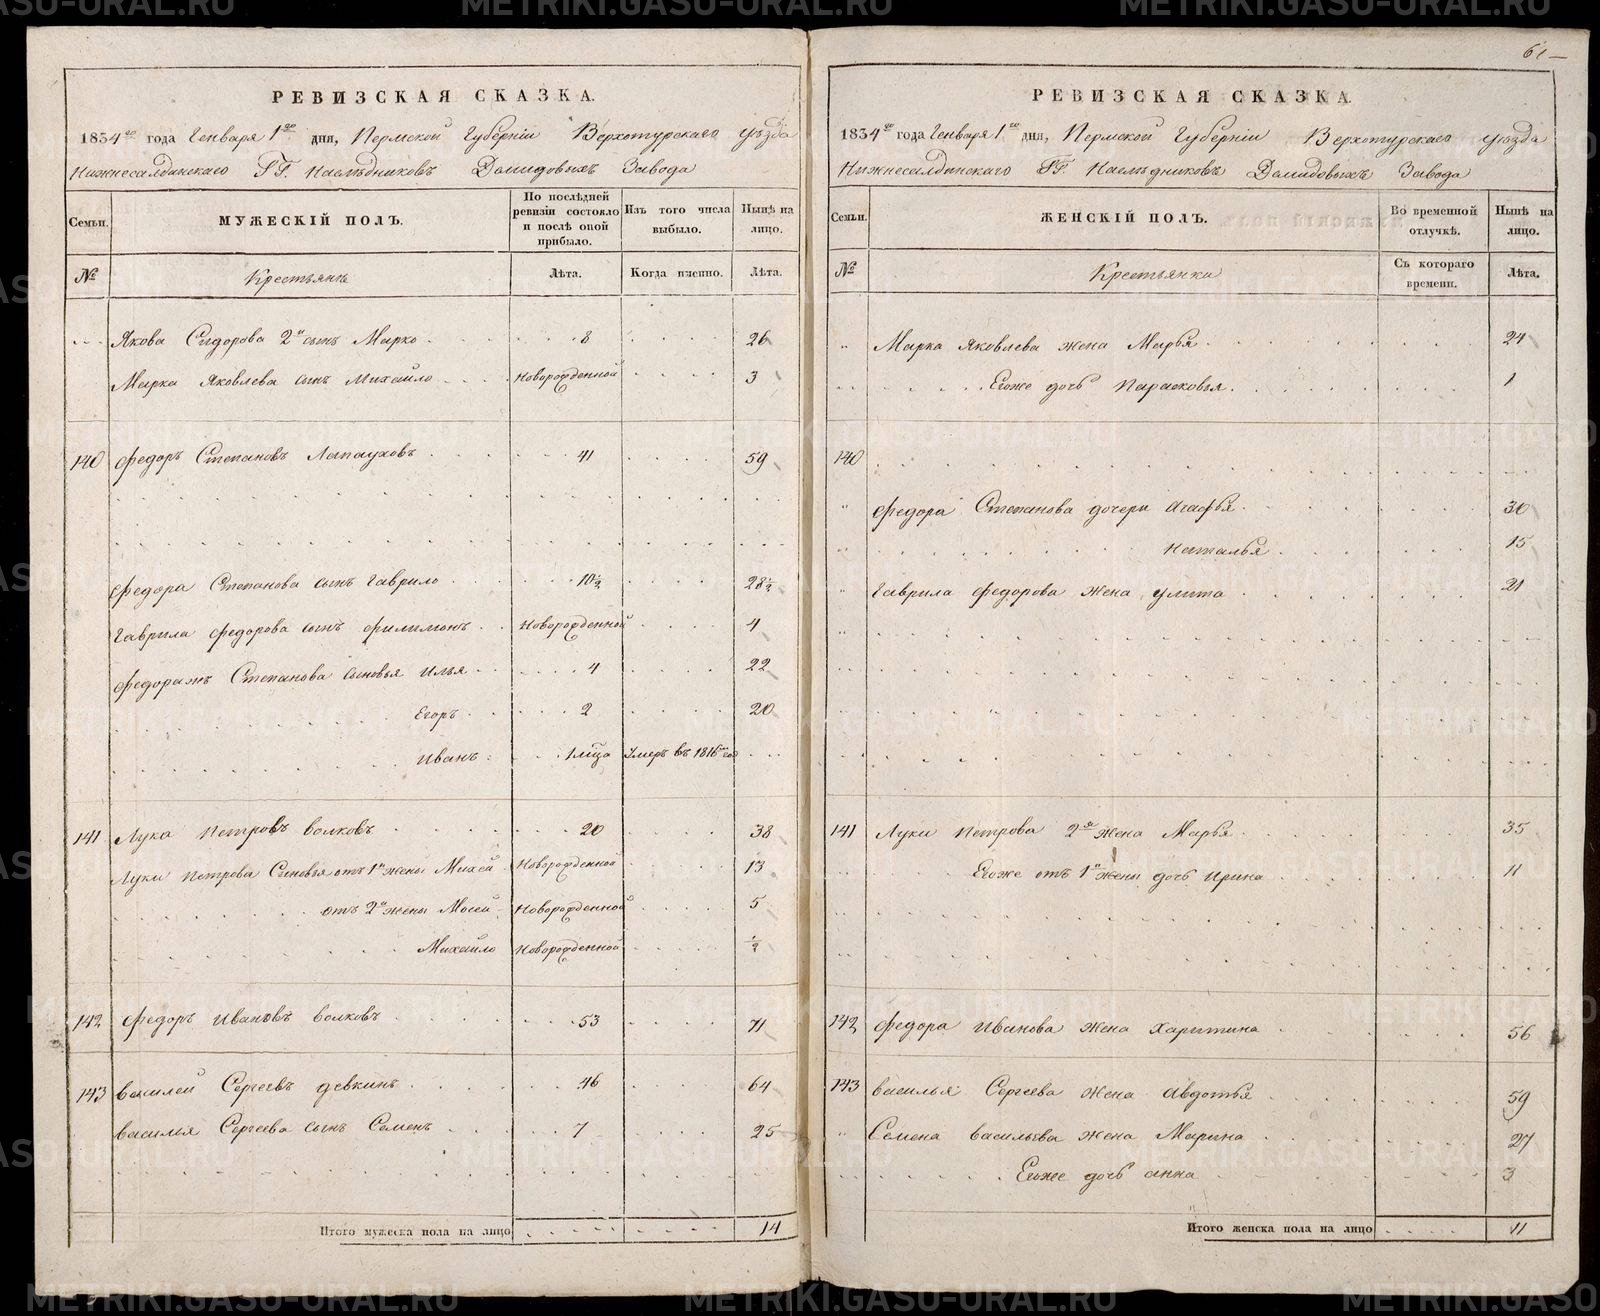 РЕВИЗСКАЯ СКАЗКА.
1834го года Генваря 1го дня, Пермской Губернiи Верхотурскаго уѣзда
Нижнесалдинскаго ГГ. Наслѣдниковъ Демидовыхъ Завода
Семьи.
МУЖЕСКIЙ ПОЛЪ.
По послѣдней ревизiи состояло и послѣ оной прибыло.
Изъ того числа выбыло.
Нынѣ на лицо.
№
Крестьянъ
Лѣта.
Когда именно.
Лѣта.
Якова Сидорова 2й сынъ Марко 8 26
Марка Яковлева сынъ Михайло Новорожденной 3
140 Федоръ Степановъ Лапауховъ 41 59
Федора Степанова сынъ Гаврило 10½ 28½
Гаврила Федорова сынъ Филимонъ Новорожденной 4
Федора жъ Степанова сыновья Илья 4 22
Егоръ 2 20
Иванъ 1 мца Умеръ въ 1816м год
141 Лука Петровъ Волковъ 20 38
Луки Петрова Сыновья отъ 1й жены Михей Новорожденной 13
отъ 2й жены Мосей Новорожденной 5
Михайло Новорожденной ½
142 Федоръ Ивановъ Волковъ 53 71
143 Василей Сергеевъ Девкинъ 46 64
Василья Сергеева сынъ Семенъ 7 25
Итого мужеска пола на лицо 14
61
РЕВИЗСКАЯ СКАЗКА.
1834го года Генваря 1го дня, Пермской Губернiи Верхотурскаго уѣзда
Нижнесалдинскаго ГГ. Наслѣдниковъ Демидовыхъ Завода
Семьи.
ЖЕНСКIЙ ПОЛЪ.
Во временной отлучкѣ.
Нынѣ на лицо.
№
Крестьянки
Съ котораго времени.
Лѣта.
Марка Яковлева жена Марья 24
Егоже дочь Парасковья 1
140
Федора Степанова дочери Агафья 30
Наталья 15
Гаврила Федорова жена Улита 21
141 Луки Петрова 2я жена Марья 35
Егоже отъ 1й жены дочь Ирина 11
142 Федора Иванова жена Харитина 56
143 Василья Сергеева жена Авдотья 59
Семена Васильева жена Марина 27
Егоже дочь Анна 3
Итого женска пола на лицо 11
METRIKI.GASO-URAL.RU